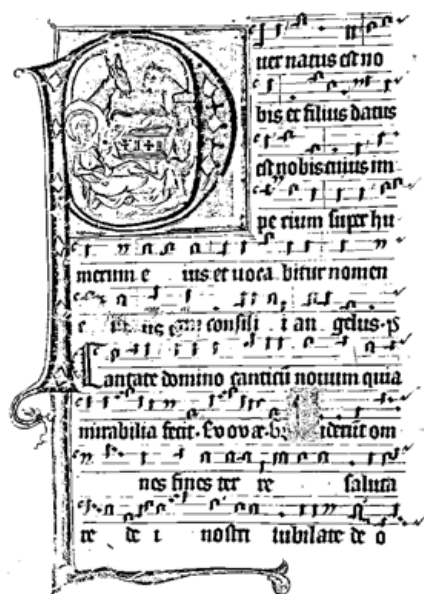 P
uer natus est no
bis et filius datus
est nobis cuius im
pe rium super hu
merum e ius et uoca bitur nomen
e ius consili i an gelus. ps
Cantate domino canticū nouum quia
mirabilia fecit. Evovae. iderūt om
nes fines ter re saluta
re de i nostri iubilate de o